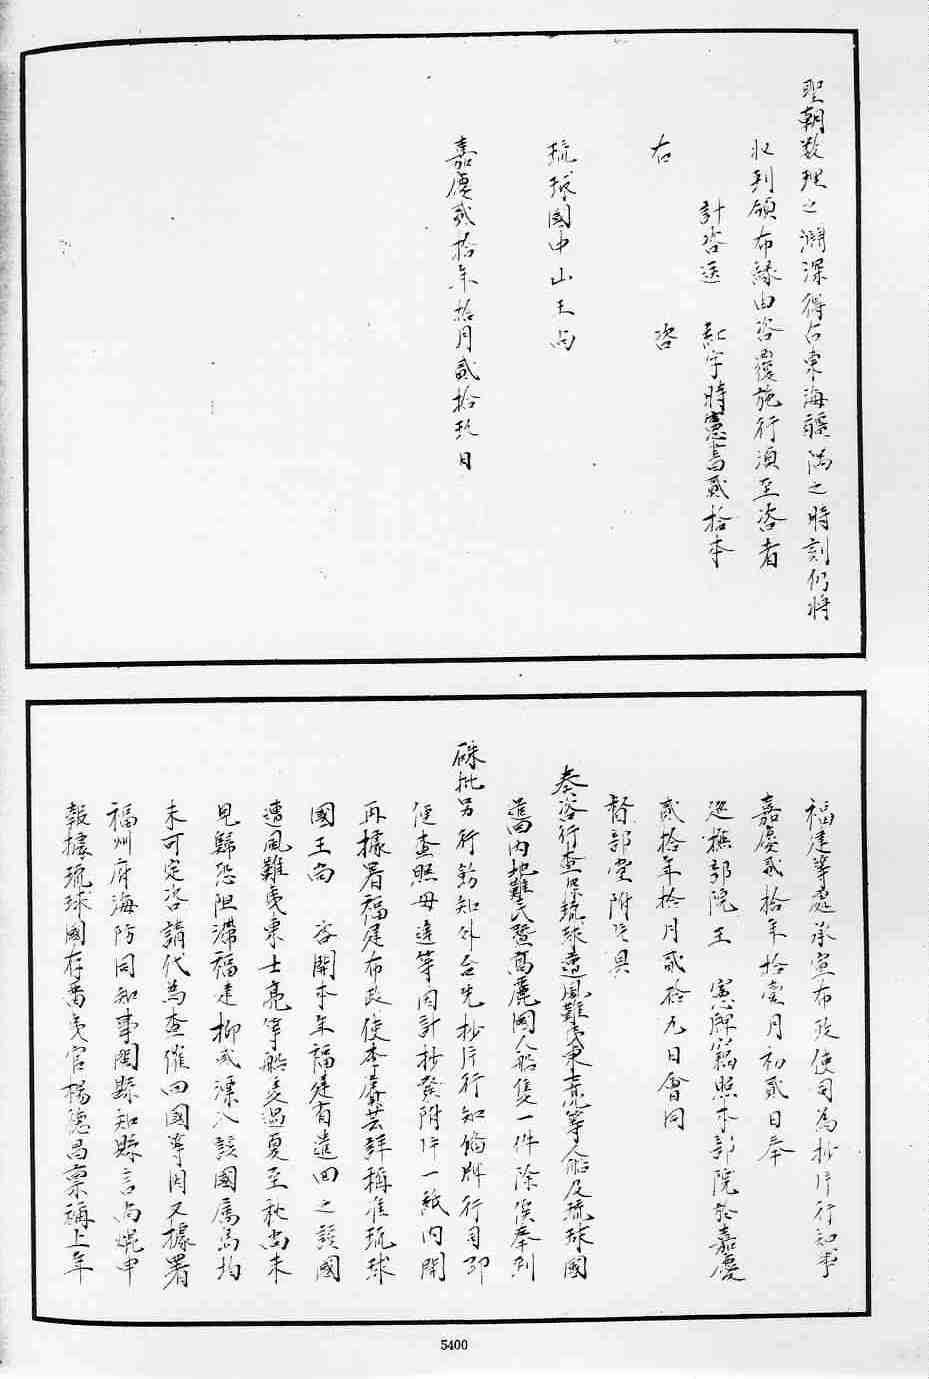 聖朝数理之淵深得占東海疆隅之時刻仍将
収到頒布縁由咨覆施行須至咨者
計咨送　紅字時憲書貳拾本
右　咨
琉球國中山王尚
嘉慶貳拾年拾月貳拾玖日
福建等處承宣布政使司為抄片行知事
嘉慶貳拾年拾壹月初貳日奉
巡撫部院王　憲牌竊照本部院於嘉慶
貳拾年拾月貳拾九日會同
督部堂附片具
奏咨行查琉球遭風難夷東士亮等人船及琉球國
舊内地難民曁高麗國人船隻一件除俟奉到
硃批另行飭知外合先抄片行知備牌行司卽
便查照毋違等因計抄發附片一紙内開
再據署福建布政使李賡芸詳稱准琉球
國王尚　咨開本年福建有遣回之該國
遭風難夷東士亮等船隻過夏至秋尚未
見歸恐阻滯福建抑或漂入該國属島均
未可定咨請代為查催回國等因又據署
福州府海防同知事閩縣知縣言尚焜申
報據琉球國存留夷官楊德昌稟稱上年
5400